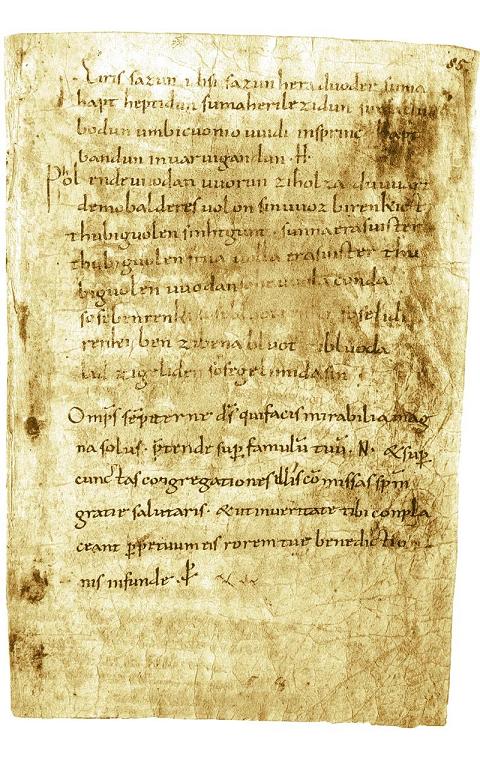 85
Eiris sazun idisi sazun hera duoder suma
hapt heptidun sumaherilezidun
bodun umbicuonio uuidi insprinc hapt
bandun inuar uigandun · H ·
Phol endeuuodan uuorun ziholza du uuart
demobalderes uolon sinuuoz birenkict
thubiguolen sinhtgunt · sunnaerasuister
thubiguolen friia uolla erasuister thu
biguolen uuodan uuola conda
sosebenrenki soselidi
renki ben zibena bluot zibluoda
lid zigeliden sosegelimidasin
Omp̄s sēpiterne ds̄ quifacis mirabilia mag
na solus · p̄tende sup̱ famulū tuū · N · &sup̱
cunctas congregationes illis cōmissas sp̄m
gratie salutaris · &ut inueritate tibi conpla
ceant p̱petuum eis rorem tue benedictio
nis infunde ·